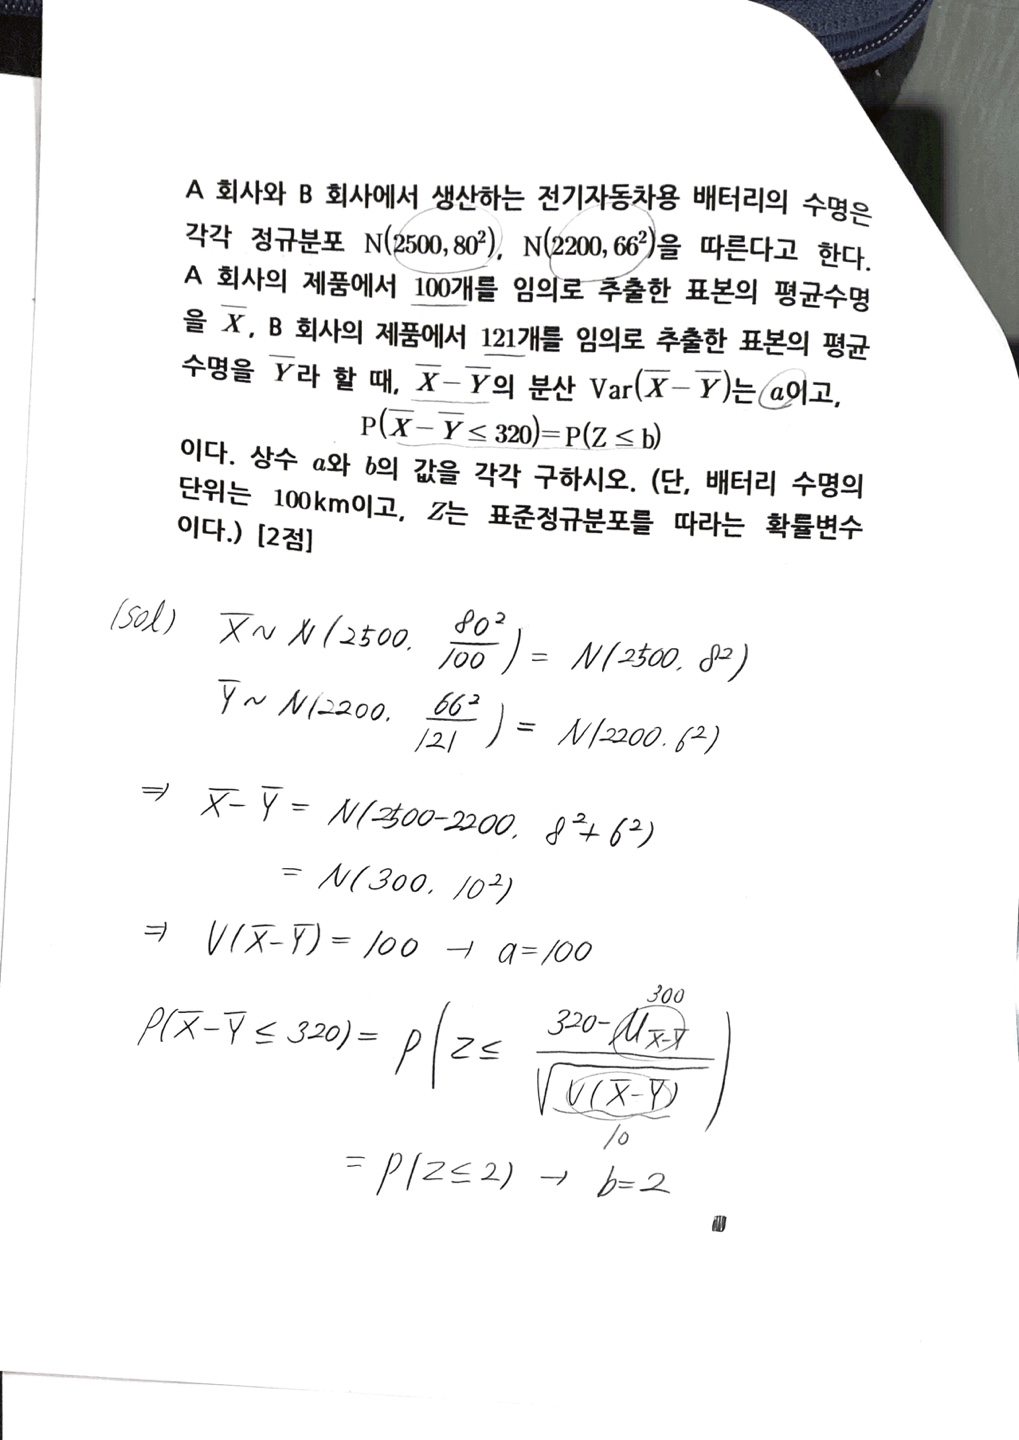 A 회사와 B 회사에서 생산하는 전기자동차용 배터리의 수명은
각각 정규분포 N(2500, 80²), N(2200, 66²)을 따른다고 한다.
A 회사의 제품에서 100개를 임의로 추출한 표본의 평균수명
을 X̅, B 회사의 제품에서 121개를 임의로 추출한 표본의 평균
수명을 Y̅라 할 때, X̅-Y̅의 분산 Var(X̅-Y̅)는 a이고,
P(X̅-Y̅≤320)=P(Z≤b)
이다. 상수 a와 b의 값을 각각 구하시오. (단, 배터리 수명의
단위는 100km이고, Z는 표준정규분포를 따라는 확률변수
이다.) [2점]
(sol) X̅ ~ N(2500, 80²/100) = N(2500, 8²)
Y̅ ~ N(2200, 66²/121) = N(2200, 6²)
⇒ X̅-Y̅ = N(2500-2200, 8²+6²)
= N(300, 10²)
⇒ V(X̅-Y̅) = 100 → a=100
300
P(X̅-Y̅ ≤ 320) = P(Z ≤ (320-μ_X̅-Y̅)/√V(X̅-Y̅))
10
= P(Z≤2) → b=2